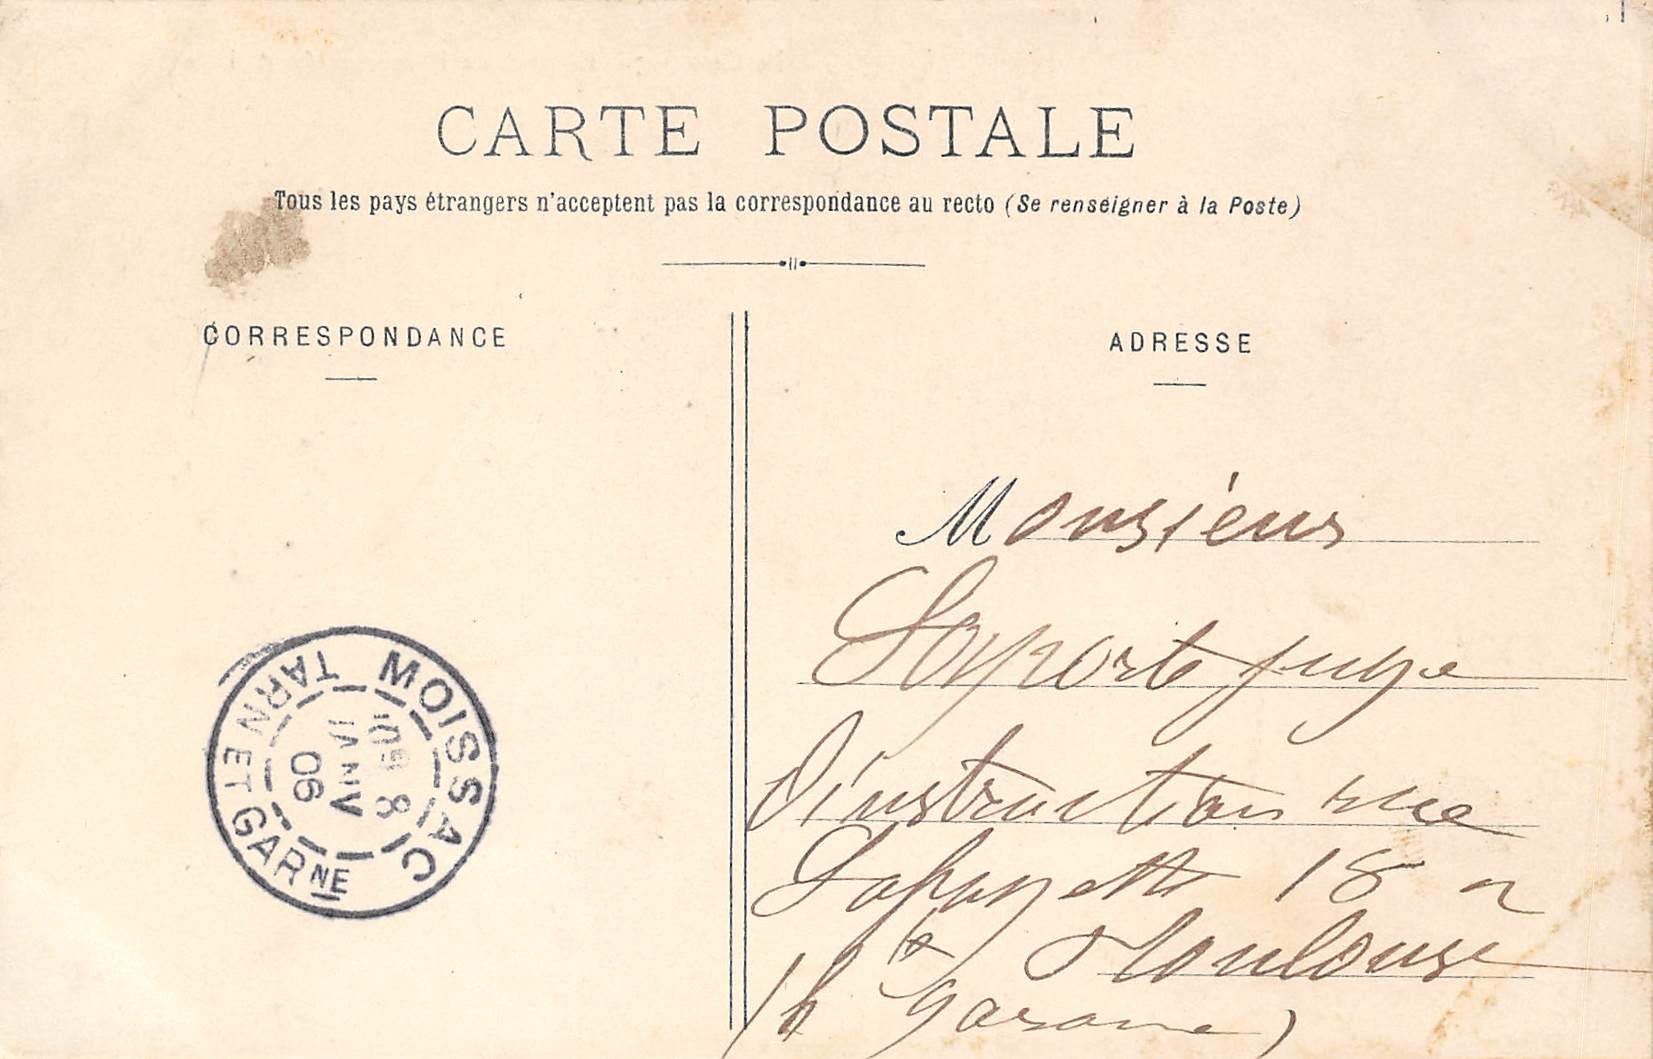 CARTE POSTALE
Tous les pays étrangers n'acceptent pas la correspondance au recto (Se renseigner à la Poste)
CORRESPONDANCE
ADRESSE
Monsieur
Laporte juge
d'instruction rue
Lafayette 18 a
Toulouse
(h te garonne)
MOISSAC
TARN ET GARNE
8
JANV
06